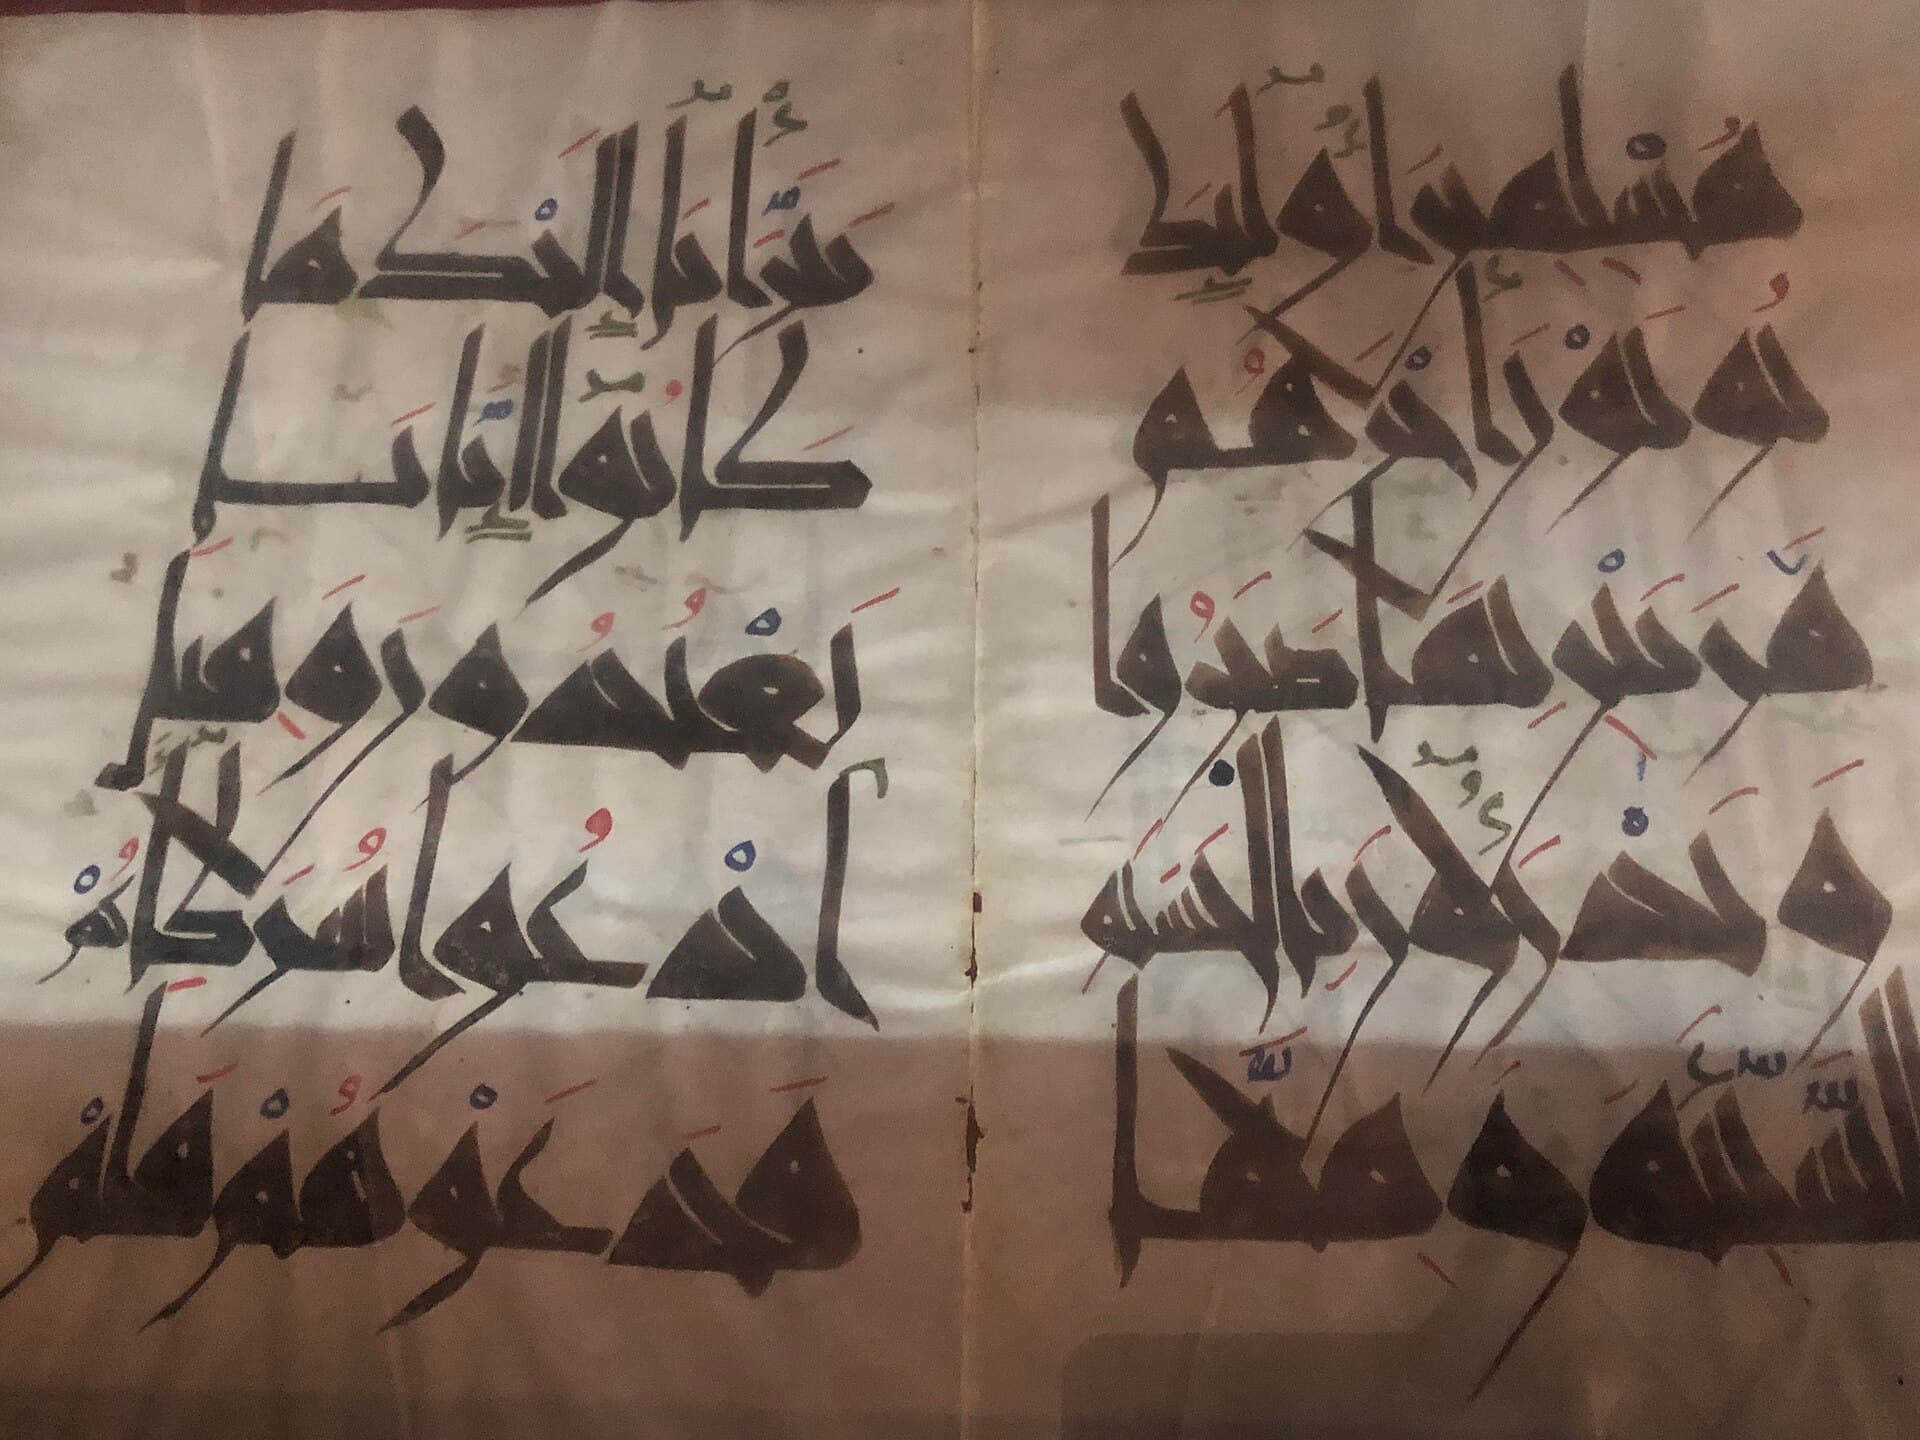 مُسْلِمِينَ أُولَٰٓئِكَ
يُؤْتَوْنَ أَجْرَهُم
مَّرَّتَيْنِ بِمَا صَبَرُوا
وَيَدْرَءُونَ بِالْحَسَنَةِ
السَّيِّئَةَ وَمِمَّا
تَبَرَّأْنَآ إِلَيْكَ مَا
كَانُوٓا إِيَّانَا
يَعْبُدُونَ وَقِيلَ
ادْعُوا شُرَكَآءَكُمْ
فَدَعَوْهُمْ فَلَمْ